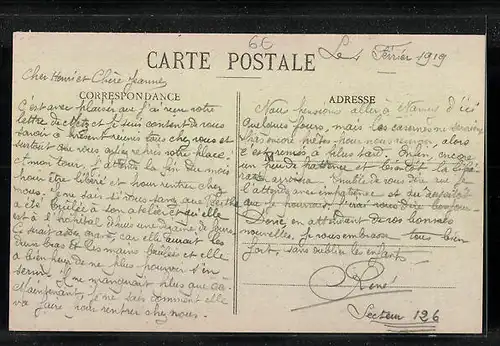 66
Le 4 Février 1919
CARTE POSTALE
Cher Henri et Chère Jeanne,
CORRESPONDANCE
C'est avec plaisir que j'ai reçu votre
lettre de et je suis content de vous
savoir à présent réunis tous chez vous et
surtout que vous ayez repris votre place.
et mon tour, j'attends la fin du mois
pour être libéré et pour rentrer chez
nous. Je ne sais si vous savez que Berthe
a été brûlée à son atelier et qu'elle
est à l'hôpital depuis une dizaine de jours.
Ce serait assez car elle aurait les
deux bras et les mains et elle
a bien peur de ne plus pouvoir s'en
servir. Il ne manquait plus que ça.
Maintenant, je ne sais comment elle
va faire pour rentrer chez nous.
ADRESSE
Nous pensions aller à d'ici
quelques jours, mais les casernes ne seraient
pas encore prêtes pour nous recevoir, alors
à plus tard. Enfin, encore
un peu de patience et bientôt la
Inutile de vous dire que je
l'attends avec impatience et
que je pourrai vous dire bonjour
Donc, en attendant de vos bonnes
nouvelles, je vous embrasse tous bien
fort, sans oublier les enfants.
René
Secteur 126